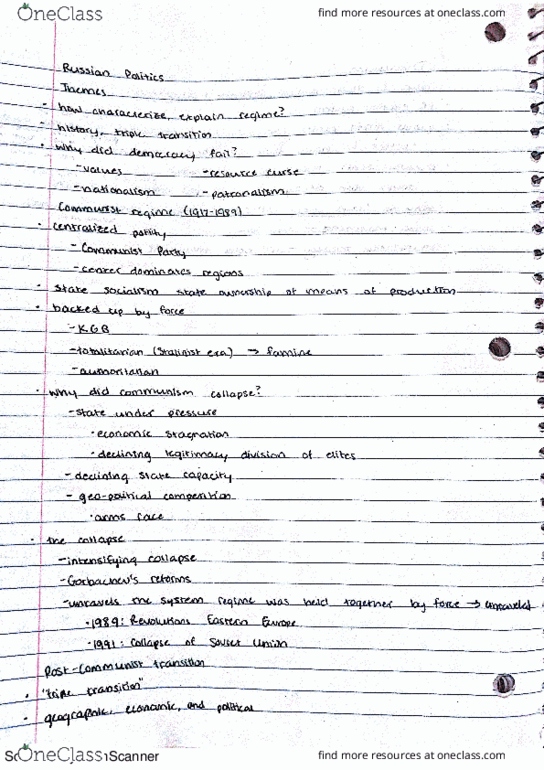 OneClass
find more resources at oneclass.com
Russian Politics
Themes
- how characterize, explain regime?
- history, triple transition
• why did democracy fail?
-values -resource curse
-nationalism -patronalism
Communist regime (1917-1989)
• centralized polity
- Communist Party
-center dominates regions
• state socialism state ownership of means of production
• backed up by force
-KGB
-totalitarian (Stalinist era) → famine
-authoritarian
• why did communism collapse?
-state under pressure
•economic stagnation
•declining legitimacy division of elites
-declining state capacity
- geo-political competition
•arms race
• the collapse
-intensifying collapse
-Gorbachev's reforms
-unravels the system regime was held together by force → unraveled
•1989: Revolutions Eastern Europe
•1991: Collapse of Soviet Union
Post-Communist transition
• "triple transition"
• geographic, economic, and political
OneClass
Scanner
find more resources at oneclass.com